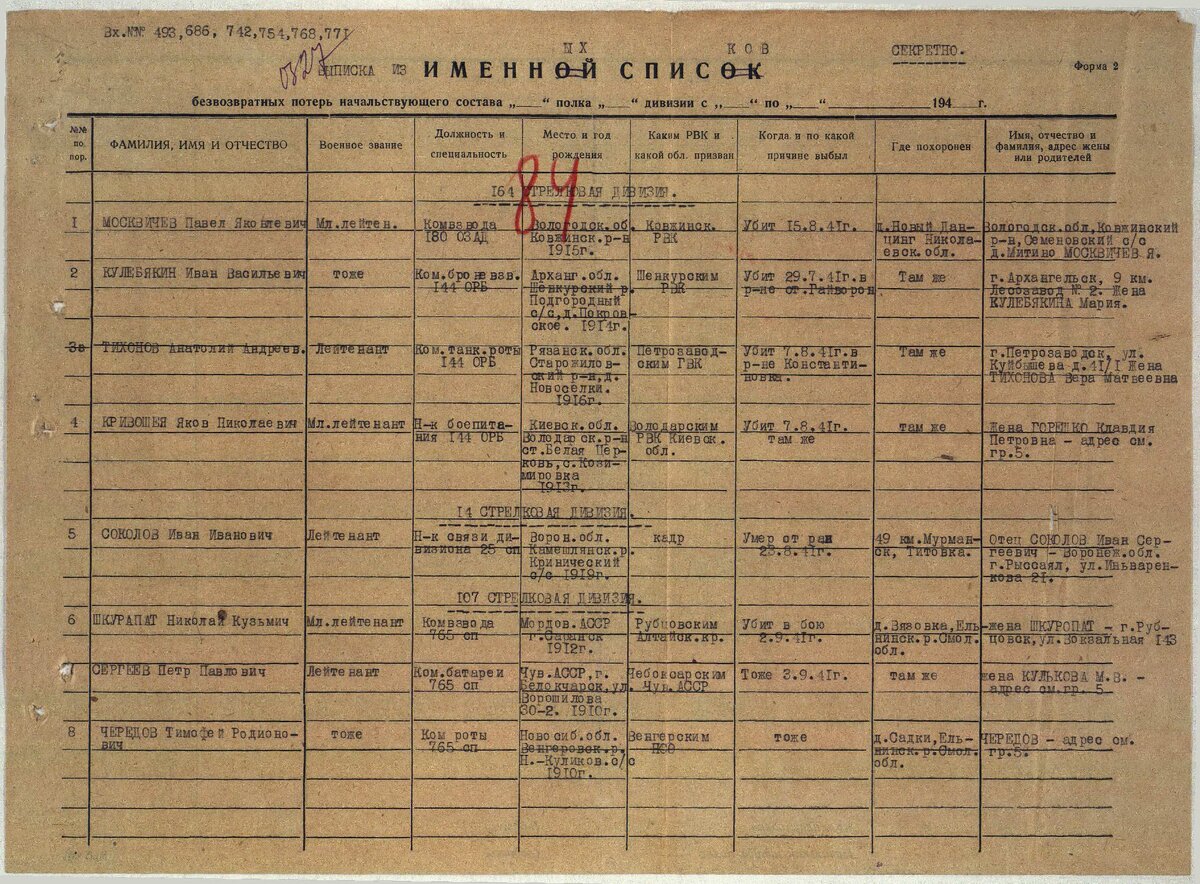 Вх.№№ 493,686, 742,754,768,771
0327
ЫХ К О В
СЕКРЕТНО.
ВЫПИСКА ИЗ ИМЕННОЙ СПИСОК
Форма 2
безвозвратных потерь начальствующего состава „ “ полка „ “ дивизии с „ “ по „ “ 194 г.
№№ по. пор.
ФАМИЛИЯ, ИМЯ И ОТЧЕСТВО
Военное звание
Должность и специальность
Место и год рождения
Каким РВК и какой обл. призван
Когда и по какой причине выбыл
Где похоронен
Имя, отчество и фамилия, адрес жены или родителей
89
164 СТРЕЛКОВАЯ ДИВИЗИЯ.
1 МОСКВИЧЕВ Павел Яковлевич Мл.лейтен. Комвзвода Вологодск.об. Ковжинск. Убит 15.8.41г. д.Новый Дан- Вологодск.обл,Ковжинский
180 ОЗАД Ковжинск.р-н РВК цинг Никола- р-н,Семеновский с/с
1915г. евск.обл. д.Митино МОСКВИЧЕВ Я.
2 КУЛЕБЯКИН Иван Васильевич тоже Ком.броневзв. Арханг.обл. Шенкурским Убит 29.7.41г.в Там же г.Архангельск, 9 км.
144 ОРБ Шенкурский р. РВК р-не ст.Гайворон Лесозавод № 2. Жена
Подгородный КУЛЕБЯКИНА Мария.
с/с,д.Покров-
ское. 1914г.
3 ТИХОНОВ Анатолий Андреев. Лейтенант Ком.танк.роты Рязанск.обл. Петрозавод- Убит 7.8.41г.в Там же г.Петрозаводск, ул.
144 ОРБ Старожилов- ским ГВК р-не Константи- Куйбышева д.41/1 Жена
ский р-н,д. новка. ТИХОНОВА Вера Матвеевна
Новоселки.
1916г.
4 КРИВОШЕЯ Яков Николаевич Мл.лейтенант Н-к боепита- Киевск.обл. Володарским Убит 7.8.41г. там же Жена ГОРЕШКО Клавдия
ния 144 ОРБ Володарск.р-н РВК Киевск. там же Петровна - адрес см.
ст.Белая Цер- обл. гр.5.
ковь,с.Кози-
мировка
1913г.
14 СТРЕЛКОВАЯ ДИВИЗИЯ.
5 СОКОЛОВ Иван Иванович Лейтенант Н-к связи ди- Ворон.обл. кадр Умер от ран 49 км.Мурман- Отец СОКОЛОВ Иван Сер-
визиона 25 сп Камешлянск.р. 23.8.41г. ск, Титовка. геевич - Воронеж.обл.
Кринический г.Рыссаял, ул.Иньварен-
с/с 1919г. кова 21.
107 СТРЕЛКОВАЯ ДИВИЗИЯ.
6 ШКУРАПАТ Николай Кузьмич Мл.лейтенант Комвзвода Мордов.АССР Рубцовским Убит в бою д.Вязовка,Ель- жена ШКУРОПАТ - г.Руб-
765 сп г.Саранск Алтайск.кр. 2.9.41г. нинск.р.Смол. цовск,ул.Вокзальная 143
1912г. обл.
7 СЕРГЕЕВ Петр Павлович Лейтенант Ком.батареи Чув.АССР,г. Чебоксарским Тоже 3.9.41г. там же жена КУЛЬКОВА М.В. -
765 сп Белокчарск,ул. Чув.АССР адрес см.гр. 5
Ворошилова
30-2. 1910г.
8 ЧЕРЕДОВ Тимофей Родионо- тоже Ком роты Новосиб.обл. Венгерским тоже д.Садки,Ель- ЧЕРЕДОВ - адрес см.
вич 765 сп Венгеровск.р. НСО нинск.р.Смол. гр.5.
Н.-Куликов.с/с обл.
1910г.